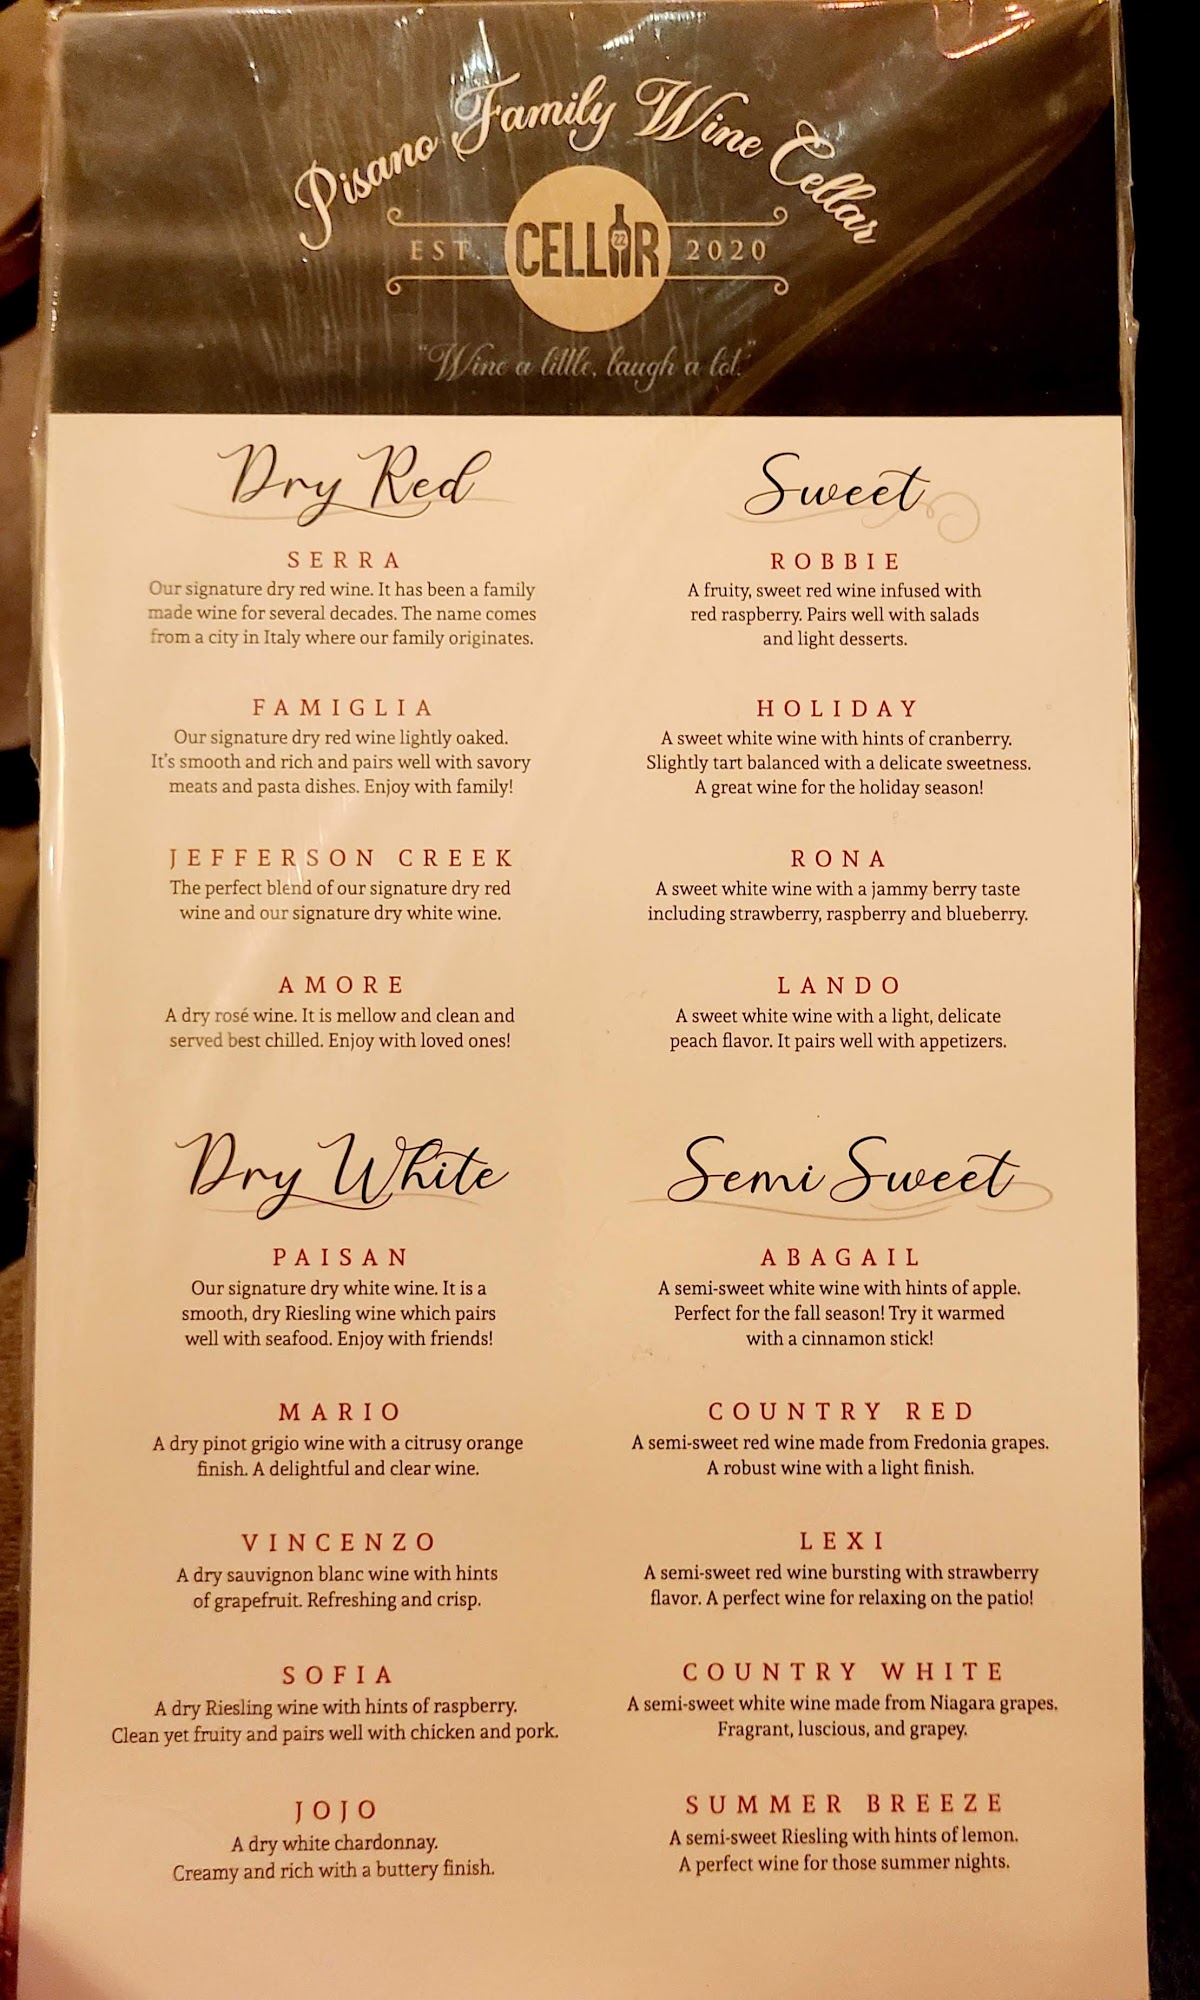 Pisano Family Wine Cellar
EST. CELLAR 22 2020
"Wine a little, laugh a lot."
Dry Red
SERRA
Our signature dry red wine. It has been a family
made wine for several decades. The name comes
from a city in Italy where our family originates.
FAMIGLIA
Our signature dry red wine lightly oaked.
It's smooth and rich and pairs well with savory
meats and pasta dishes. Enjoy with family!
JEFFERSON CREEK
The perfect blend of our signature dry red
wine and our signature dry white wine.
AMORE
A dry rosé wine. It is mellow and clean and
served best chilled. Enjoy with loved ones!
Dry White
PAISAN
Our signature dry white wine. It is a
smooth, dry Riesling wine which pairs
well with seafood. Enjoy with friends!
MARIO
A dry pinot grigio wine with a citrusy orange
finish. A delightful and clear wine.
VINCENZO
A dry sauvignon blanc wine with hints
of grapefruit. Refreshing and crisp.
SOFIA
A dry Riesling wine with hints of raspberry.
Clean yet fruity and pairs well with chicken and pork.
JOJO
A dry white chardonnay.
Creamy and rich with a buttery finish.
Sweet
ROBBIE
A fruity, sweet red wine infused with
red raspberry. Pairs well with salads
and light desserts.
HOLIDAY
A sweet white wine with hints of cranberry.
Slightly tart balanced with a delicate sweetness.
A great wine for the holiday season!
RONA
A sweet white wine with a jammy berry taste
including strawberry, raspberry and blueberry.
LANDO
A sweet white wine with a light, delicate
peach flavor. It pairs well with appetizers.
Semi Sweet
ABAGAIL
A semi-sweet white wine with hints of apple.
Perfect for the fall season! Try it warmed
with a cinnamon stick!
COUNTRY RED
A semi-sweet red wine made from Fredonia grapes.
A robust wine with a light finish.
LEXI
A semi-sweet red wine bursting with strawberry
flavor. A perfect wine for relaxing on the patio!
COUNTRY WHITE
A semi-sweet white wine made from Niagara grapes.
Fragrant, luscious, and grapey.
SUMMER BREEZE
A semi-sweet Riesling with hints of lemon.
A perfect wine for those summer nights.